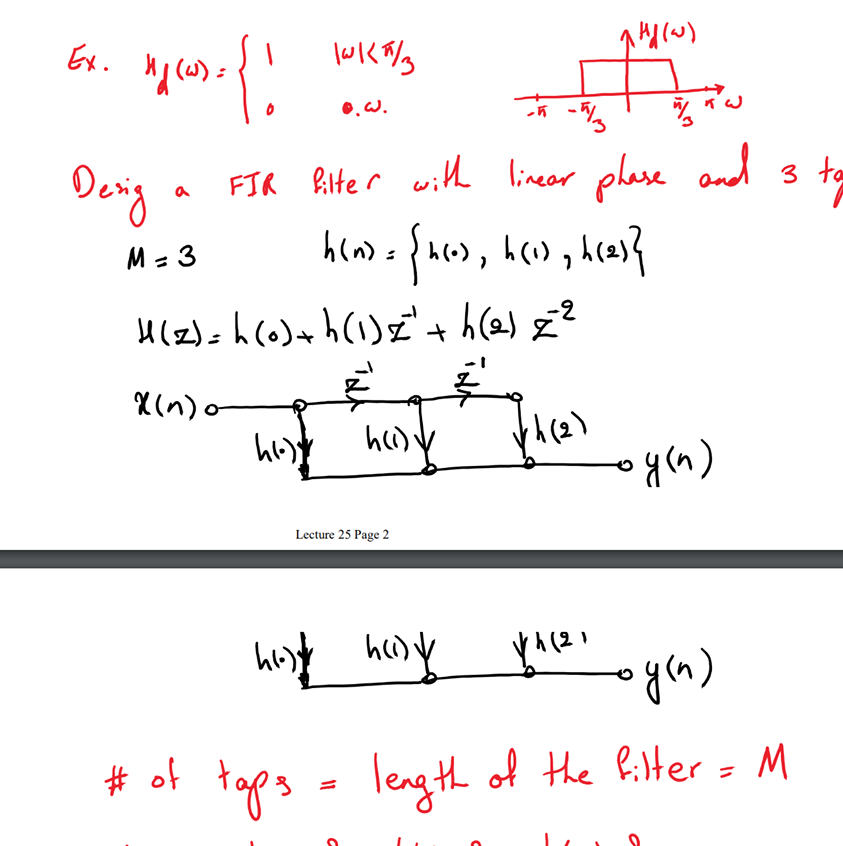 Ex. Hd(ω) = { 1 |ω| < π/3
0 o.w.
Hd(ω)
-π -π/3 π/3 π ω
Desig a FIR filter with linear phase and 3 ta
M = 3 h(n) = {h(0), h(1), h(2)}
H(z) = h(0) + h(1) z⁻¹ + h(2) z⁻²
z⁻¹ z⁻¹
x(n)
h(0) h(1) h(2)
y(n)
Lecture 25 Page 2
h(0) h(1) h(2)
y(n)
# of taps = length of the filter = M